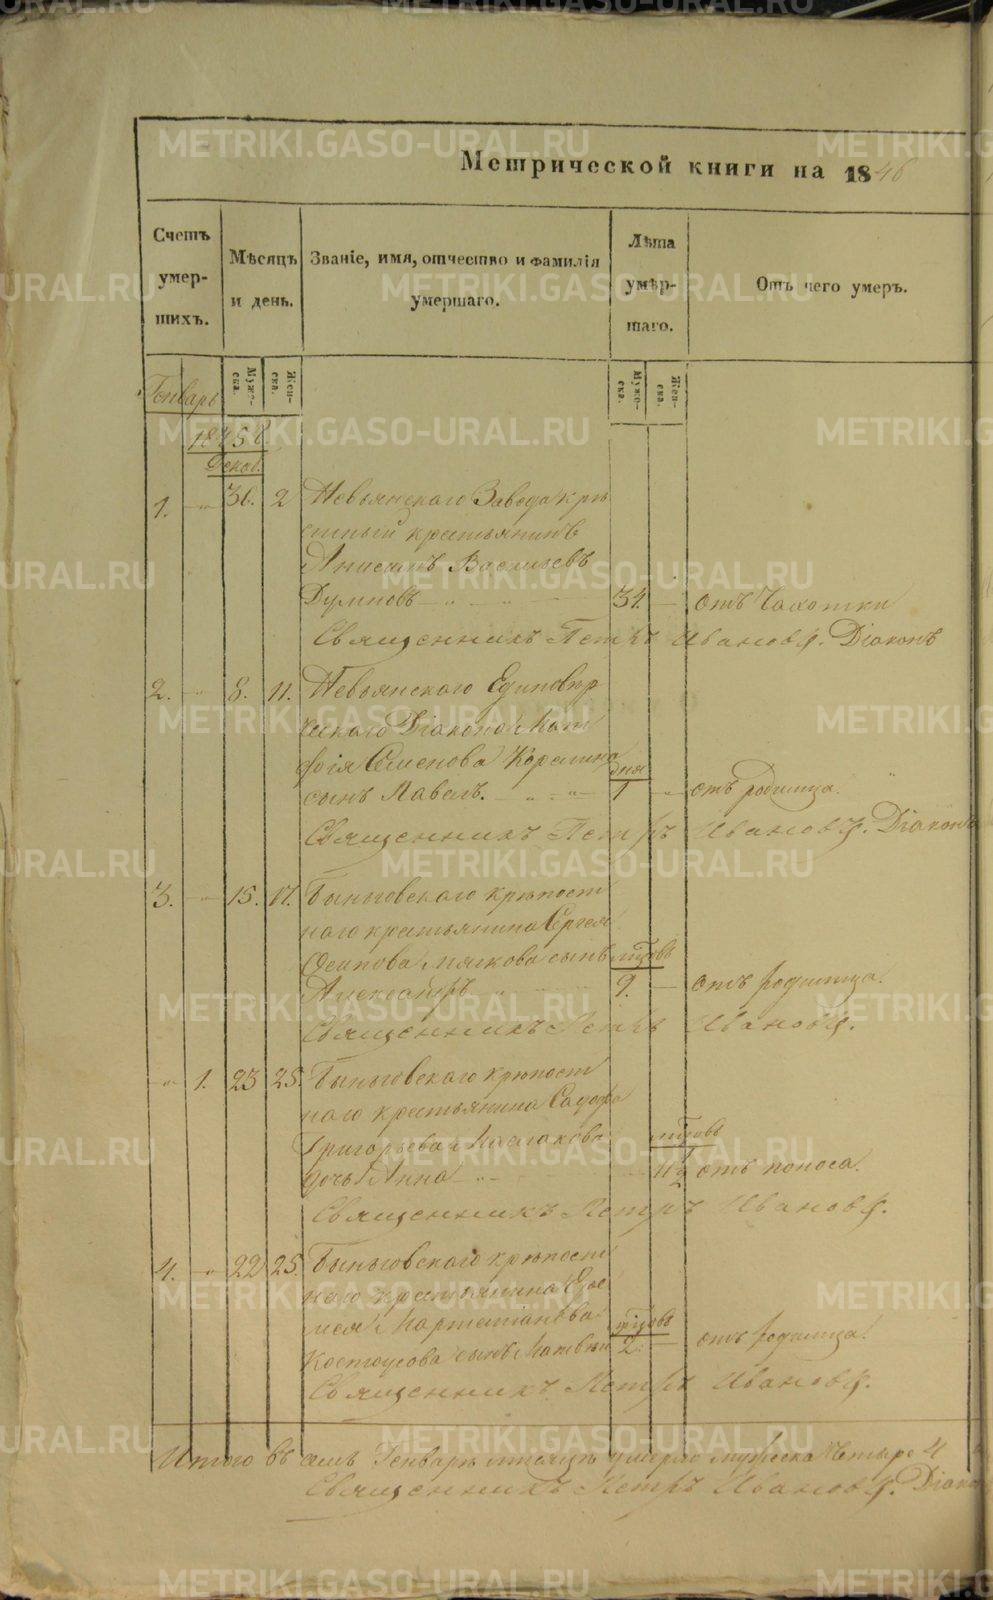 Метрической книги на 1846
Счетъ умер-шихъ.
Мѣсяцъ и день.
Званіе, имя, отчество и фамилія умершаго.
Лѣта умѣр-шаго.
Отъ чего умеръ.
Муже-ска.
Жен-ска.
Муже-ска.
Жен-ска.
Генварь
1845 г.
Декаб.
1. 30. 2 Невьянскаго Завода крѣ
постный крестьянинъ
Васильевъ
34. отъ Чахотки
Священникъ Петръ Ивановъ. Діаконъ
2. 8. 11. Невьянскаго Единовѣр
ческаго Діакона Мат
фія Семенова
дня
сынъ Павелъ. 1 отъ родимца.
Священникъ Петръ Ивановъ. Діаконъ
3. 15. 17. Быньговскаго крѣпост
наго крестьянина Сергея
Осипова Мягкова сынъ мцовъ
Александръ 9. отъ родимца.
Священникъ Петръ Ивановъ.
1. 23 25. Быньговскаго крѣпост
наго крестьянина
Григорьева мцовъ
дочь Анна отъ поноса.
Священникъ Петръ Ивановъ.
4. 22 25. Быньговскаго крѣпост
наго крестьянина Ере
мея мцовъ
Костоусова сынъ Матвѣй 2. отъ родимца.
Священникъ Петръ Ивановъ.
Итого въ семъ Генварѣ мѣсяцѣ умерло мужеска Четыре 4
Священникъ Петръ Ивановъ. Діакон
METRIKI.GASO-URAL.RU